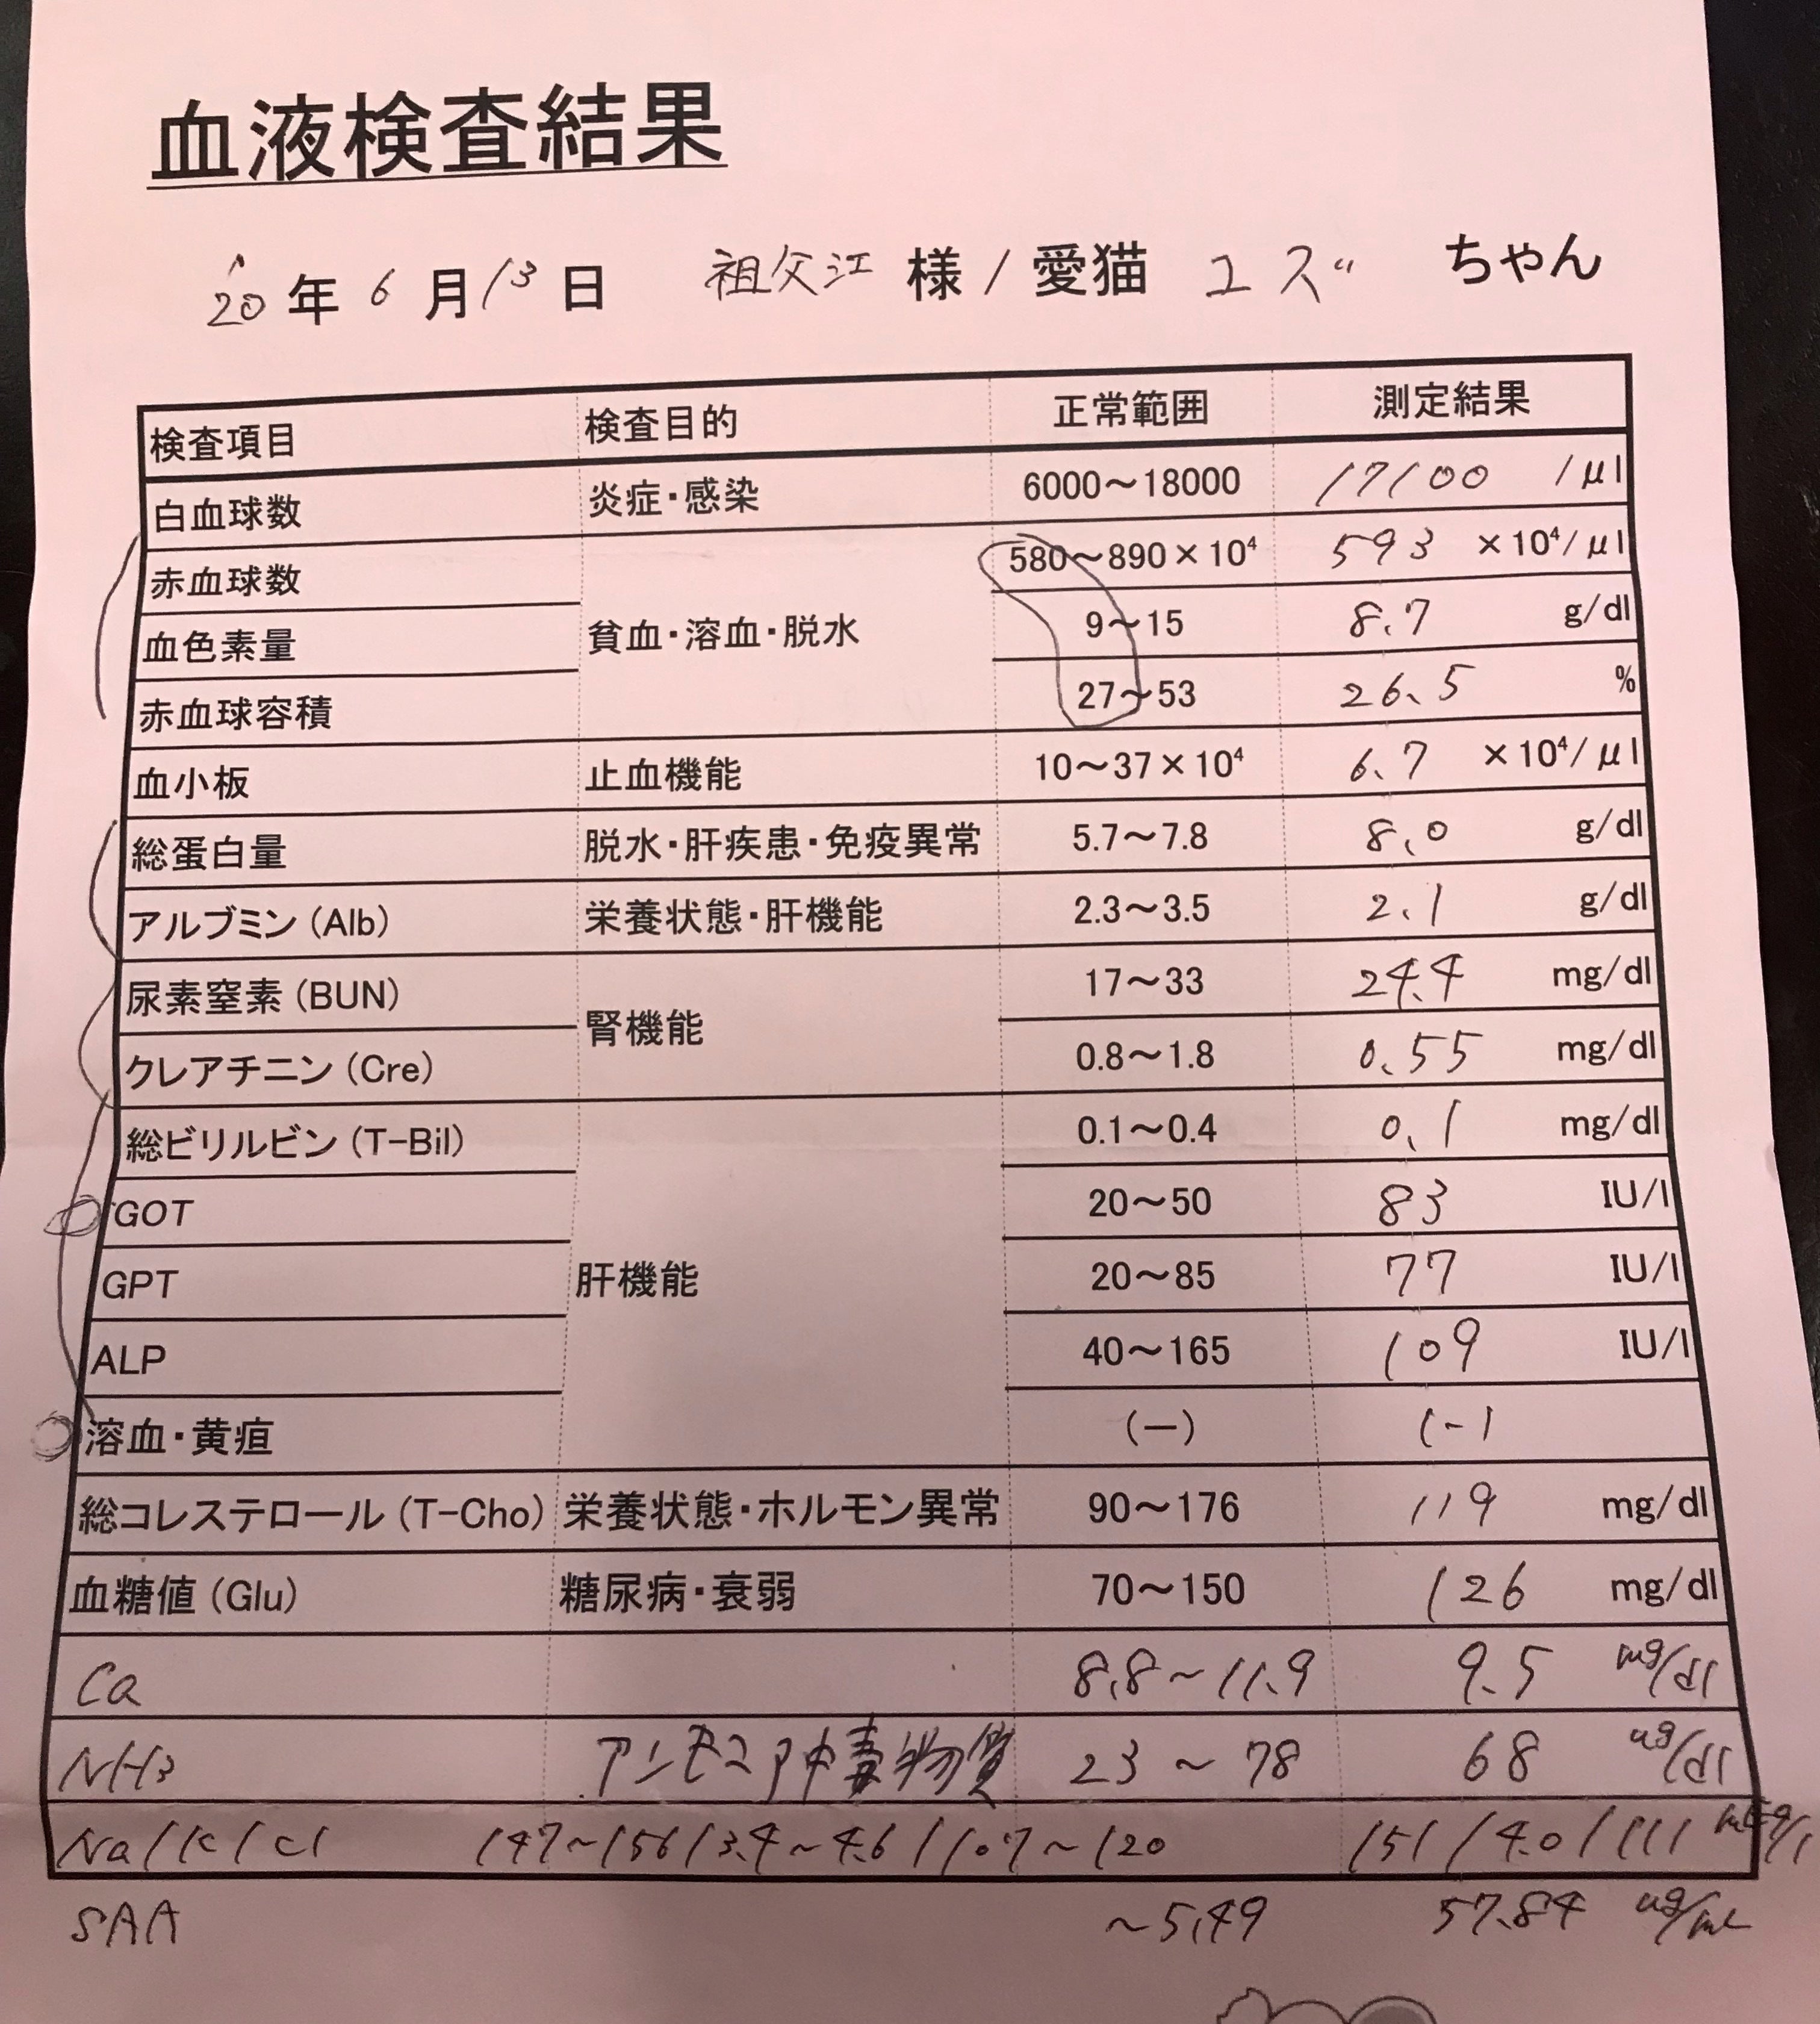 血液検査結果
20年6月13日 祖父江 様 / 愛猫 ユズ ちゃん
検査項目 検査目的 正常範囲 測定結果
白血球数 炎症・感染 6000～18000 17100 /μl
赤血球数 580～890×10⁴ 593 ×10⁴/μl
貧血・溶血・脱水
血色素量 9～15 8.7 g/dl
赤血球容積 27～53 26.5 %
血小板 止血機能 10～37×10⁴ 6.7 ×10⁴/μl
総蛋白量 脱水・肝疾患・免疫異常 5.7～7.8 8.0 g/dl
アルブミン(Alb) 栄養状態・肝機能 2.3～3.5 2.1 g/dl
尿素窒素(BUN) 17～33 24.4 mg/dl
腎機能
クレアチニン(Cre) 0.8～1.8 0.55 mg/dl
総ビリルビン(T-Bil) 0.1～0.4 0.1 mg/dl
GOT 20～50 83 IU/l
GPT 肝機能 20～85 77 IU/l
ALP 40～165 109 IU/l
溶血・黄疸 (－) (-)
総コレステロール(T-Cho) 栄養状態・ホルモン異常 90～176 119 mg/dl
血糖値(Glu) 糖尿病・衰弱 70～150 126 mg/dl
Ca 8.8～11.9 9.5 mg/dl
NH3 アンモニア中毒物質 23～78 68 ug/dl
Na/K/Cl 147～156/3.4～4.6/107～120 151/4.0/111 mEq/l
SAA ～5.49 57.84 ug/mL